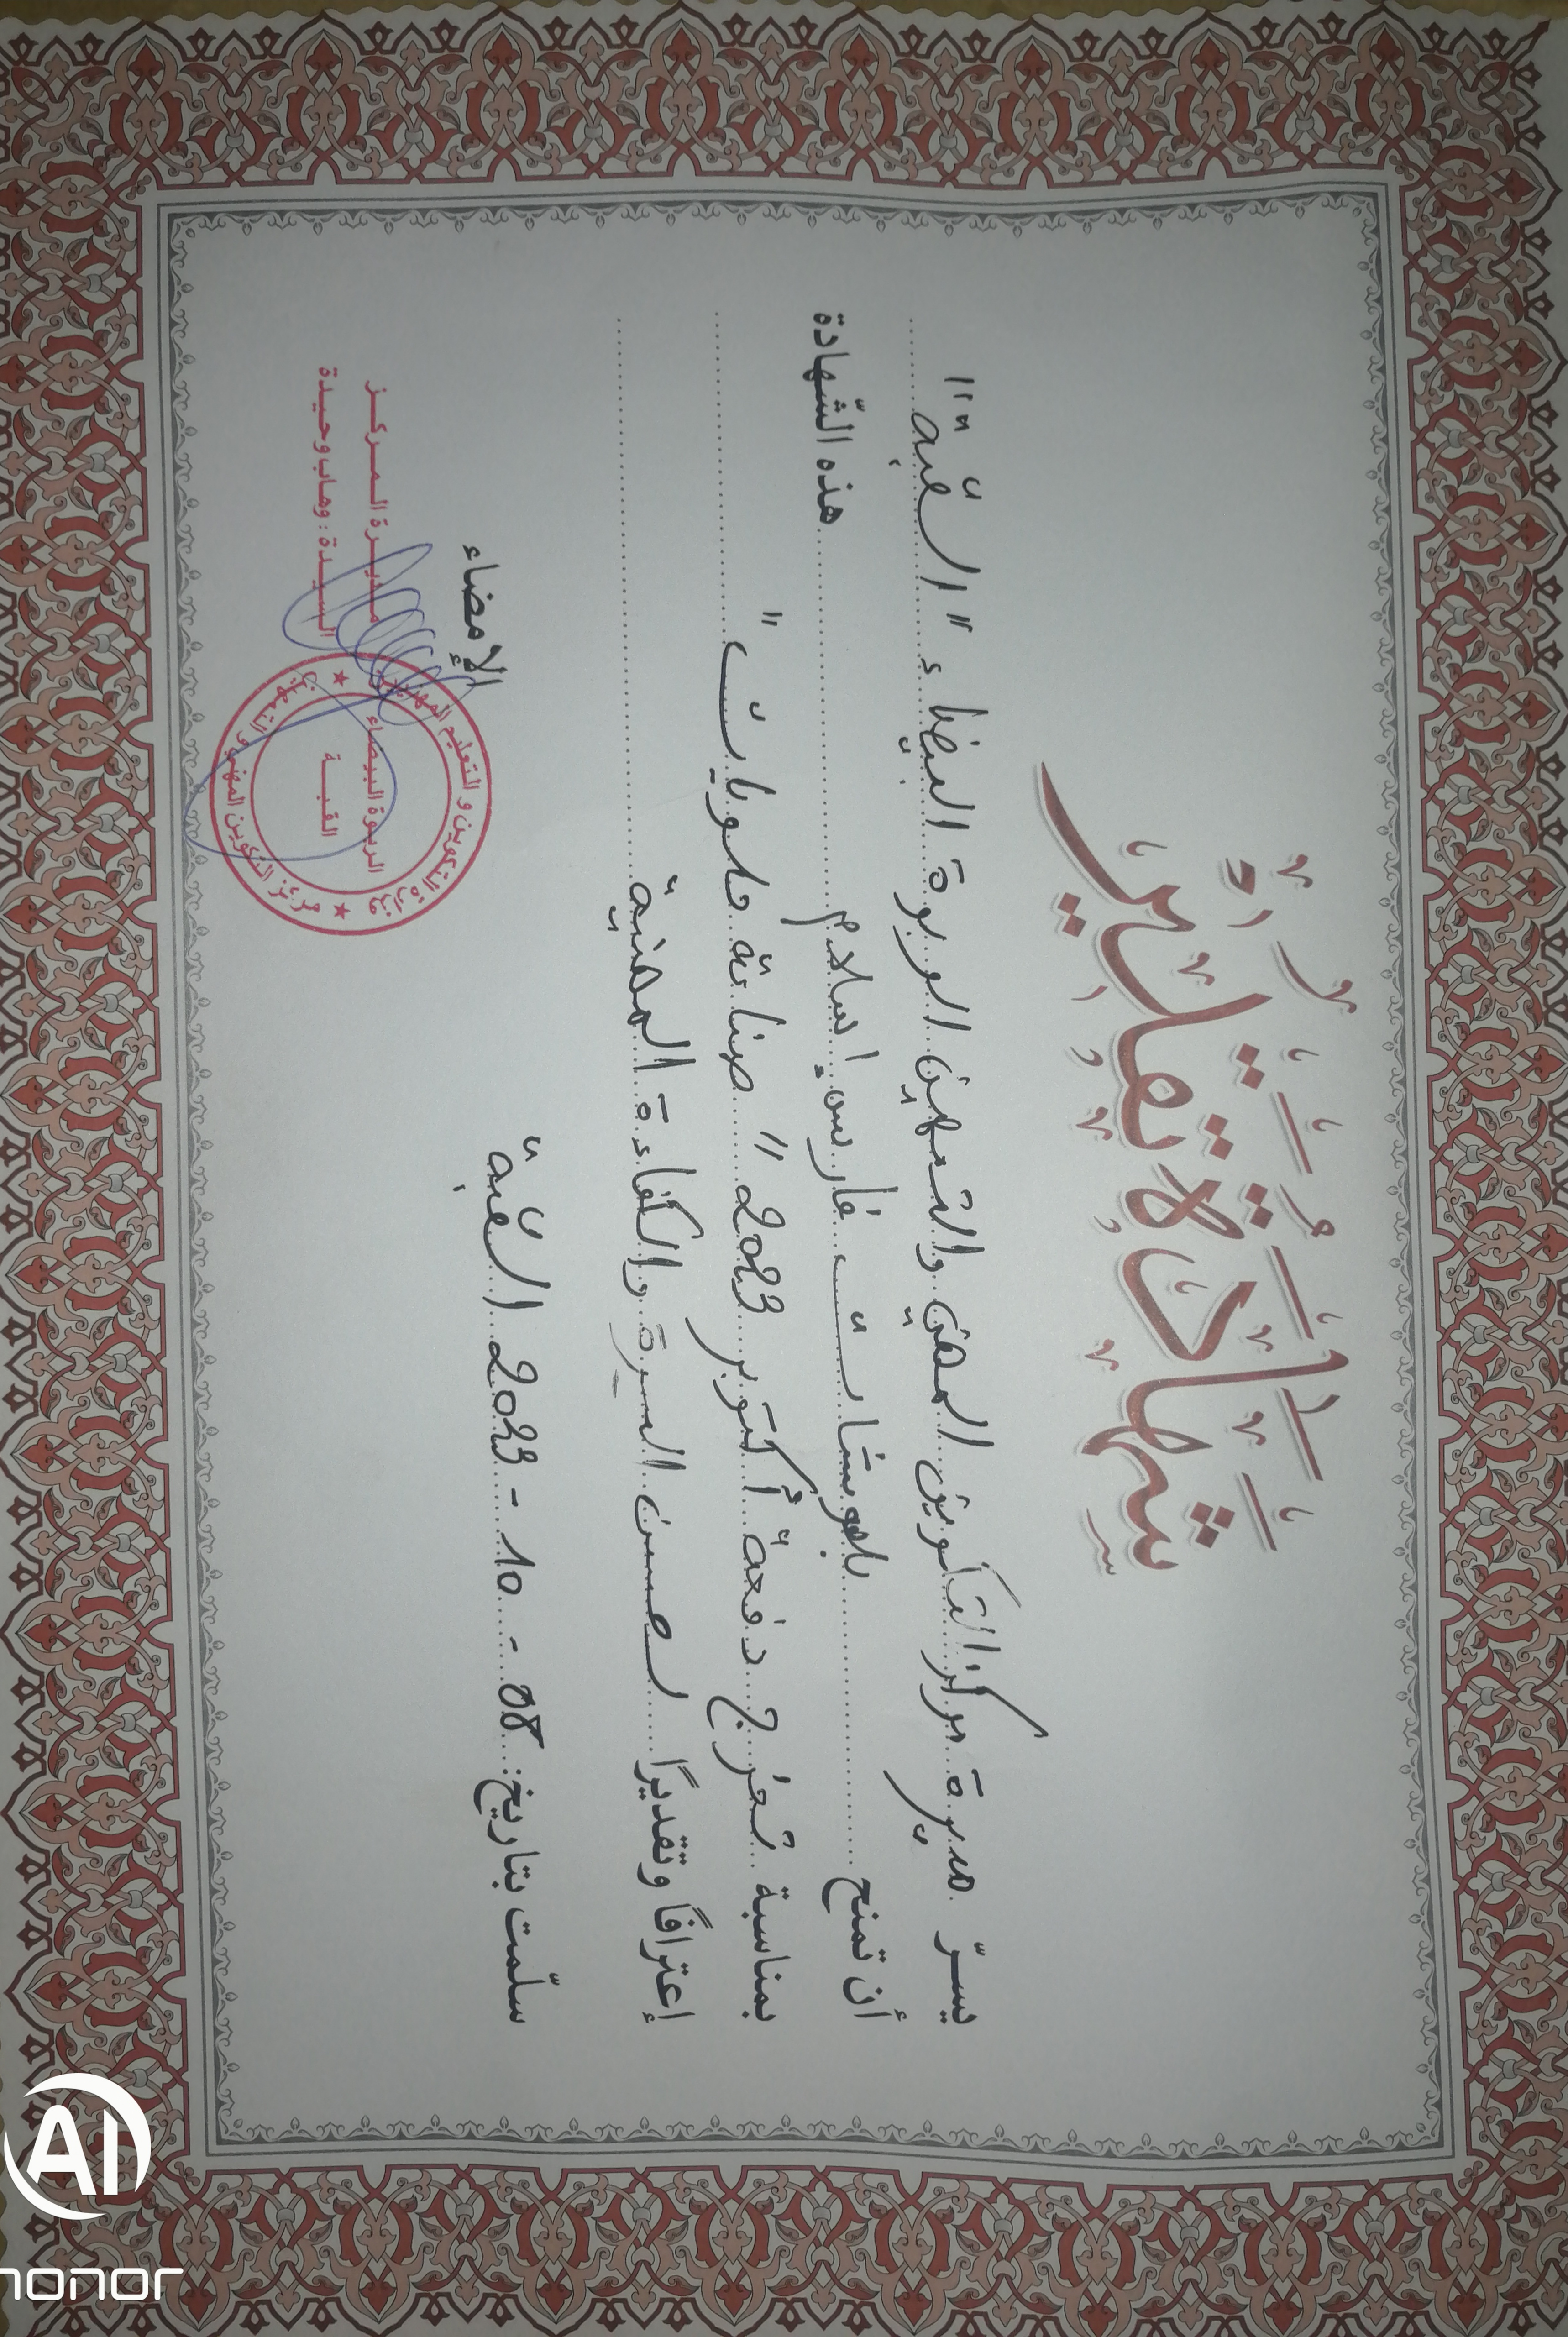 شهادة تقدير
يسرّ مديرة مركز التكوين المهني والتمهين الربوة البيضاء " القبة "
أن تمنح بلهوشات فارس إسلام هذه الشّهادة
بمناسبة تخرج دفعة أكتوبر 2023 " صناعة حلويات "
إعترافًا وتقديرًا لحسن السيرة والكفاءة المهنية
سلّمت بتاريخ: 08 - 10 - 2023 القبة
الإمضاء
مديرة المركز
السيدة : وهاب وحيدة
وزارة التكوين و التعليم المهنيين
مركز التكوين المهني و التمهين
الربوة البيضاء
القبة
AI
HONOR